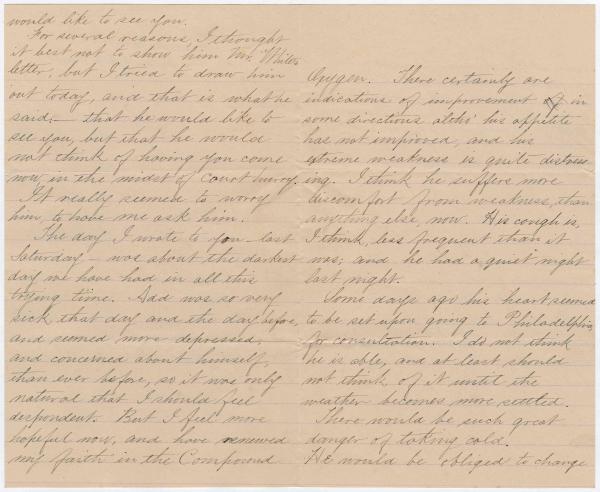 would like to see you.
For several reasons, I thought
it best not to show him Mr. White's
letter, but I tried to draw him
out today, and that is what he
said:— that he would like to
see you, but that he would
not think of having you come
now, in the midst of court hurry.
It really seemed to worry
him, to have me ask him.
The day I wrote to you – last
Saturday – was about the darkest
day we have had in all this
trying time. Dad was so very
sick that day and the day before,
and seemed more depressed,
and concerned about himself,
than ever before, so it was only
natural that I should feel
despondent. But I feel more
hopeful now, and have renewed
my faith in the Compound
Oxygen. There certainly are
indications of improvement in
some directions altho' his appetite
has not improved, and his
extreme weakness is quite distress-
ing. I think he suffers more
discomfort from weakness, than
anything else, now. His cough is,
I think, less frequent than it
was; and he had a quiet night
last night.
Some days ago his heart seemed
to be set upon going to Philadelphia,
for consultation. I do not think
he is able, and at least should
not think of it until the
weather becomes more settled.
There would be such great
danger of taking cold.
He would be obliged to change